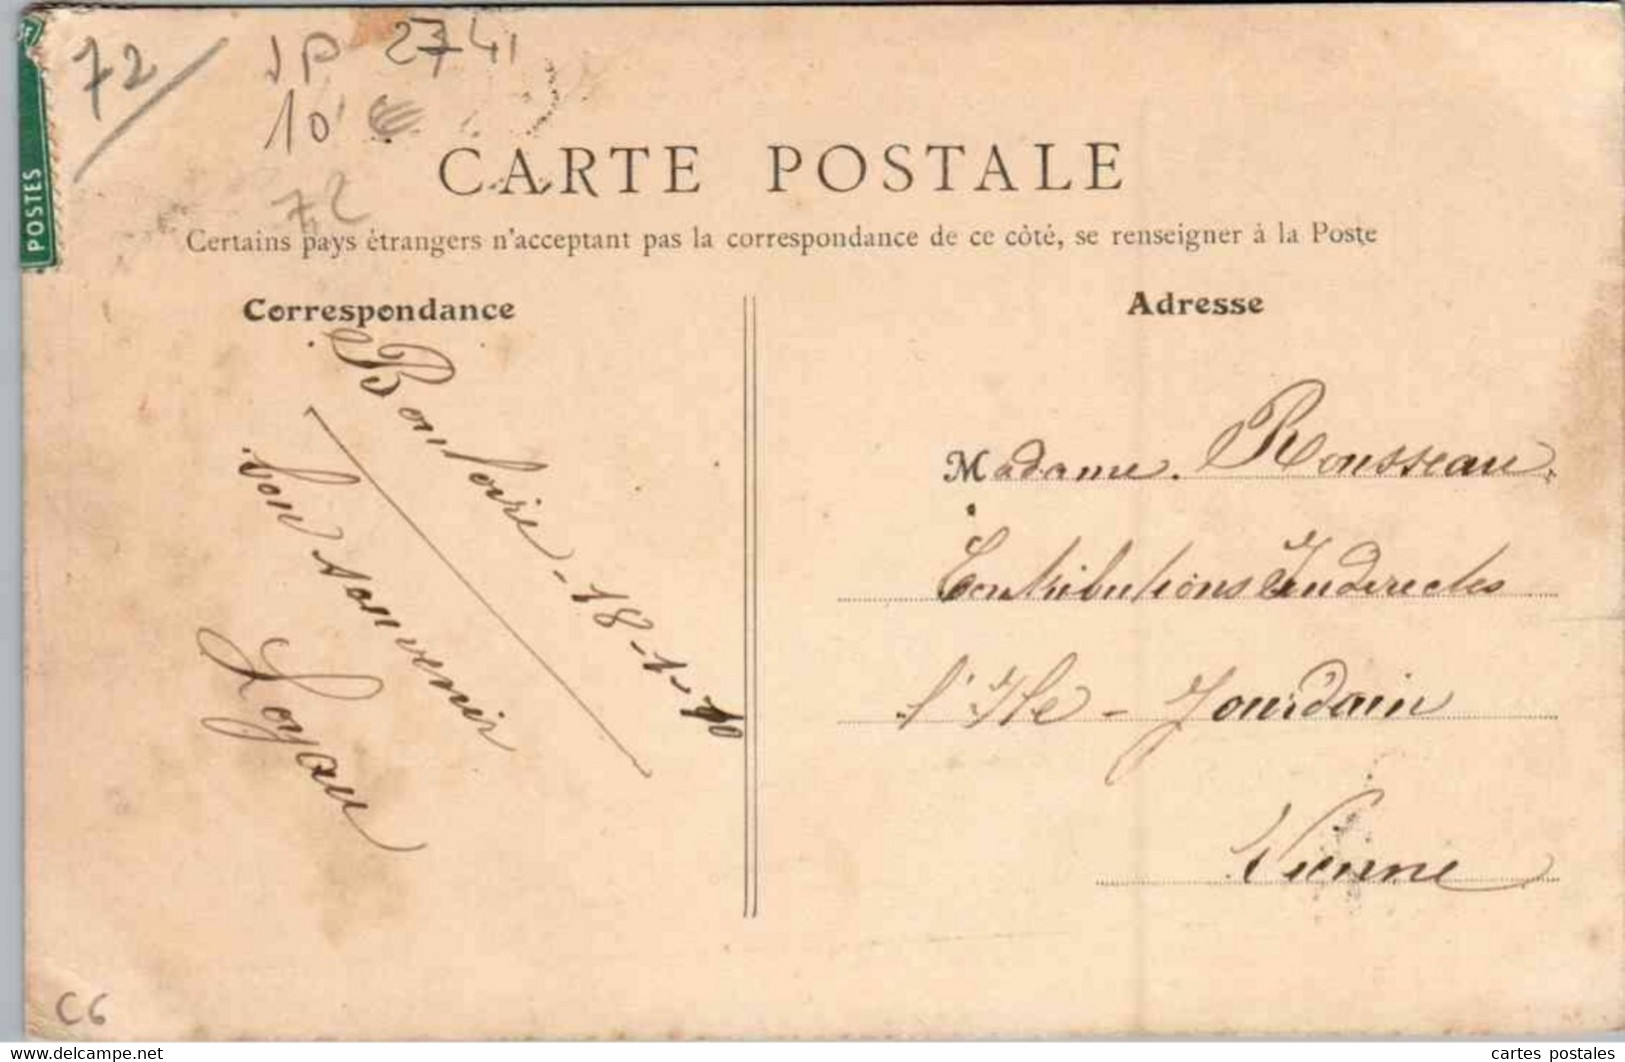 72
JP 2741
10 €
72
POSTES
CARTE POSTALE
Certains pays étrangers n'acceptant pas la correspondance de ce côté, se renseigner à la Poste
Correspondance
Bouloire - 18-1-10
bon souvenir
Loyau
Adresse
Madame Rousseau
Contributions Indirectes
l'Ile-Jourdain
Vienne
C6
www.delcampe.net
cartes postales